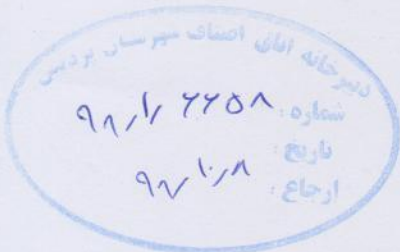 دبیرخانه اتاق اصناف شهرستان پردیس
شماره : ۹۸/۱/۶۶۵۸
تاریخ : ۹۸/۱۰/۸
ارجاع :